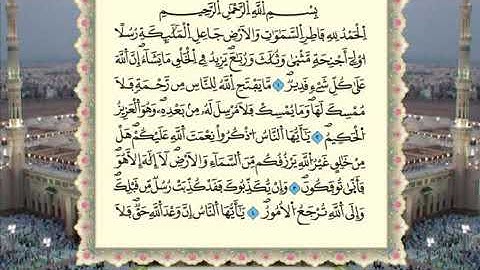 بِسْمِ اللَّهِ الرَّحْمَٰنِ الرَّحِيمِ
الْحَمْدُ لِلَّهِ فَاطِرِ السَّمَٰوَٰتِ وَالْأَرْضِ جَاعِلِ الْمَلَٰٓئِكَةِ رُسُلًا
أُولِىٓ أَجْنِحَةٍ مَّثْنَىٰ وَثُلَٰثَ وَرُبَٰعَ ۚ يَزِيدُ فِى الْخَلْقِ مَا يَشَآءُ ۚ إِنَّ اللَّهَ
عَلَىٰ كُلِّ شَىْءٍ قَدِيرٌ ۝١ مَّا يَفْتَحِ اللَّهُ لِلنَّاسِ مِن رَّحْمَةٍ فَلَا
مُمْسِكَ لَهَا ۖ وَمَا يُمْسِكْ فَلَا مُرْسِلَ لَهُۥ مِنۢ بَعْدِهِۦ ۚ وَهُوَ الْعَزِيزُ
الْحَكِيمُ ۝٢ يَٰٓأَيُّهَا النَّاسُ اذْكُرُوا۟ نِعْمَتَ اللَّهِ عَلَيْكُمْ ۚ هَلْ
مِنْ خَٰلِقٍ غَيْرُ اللَّهِ يَرْزُقُكُم مِّنَ السَّمَآءِ وَالْأَرْضِ ۚ لَآ إِلَٰهَ إِلَّا هُوَ ۖ
فَأَنَّىٰ تُؤْفَكُونَ ۝٣ وَإِن يُكَذِّبُوكَ فَقَدْ كُذِّبَتْ رُسُلٌ مِّن قَبْلِكَ ۚ
وَإِلَى اللَّهِ تُرْجَعُ الْأُمُورُ ۝٤ يَٰٓأَيُّهَا النَّاسُ إِنَّ وَعْدَ اللَّهِ حَقٌّ ۖ فَلَا